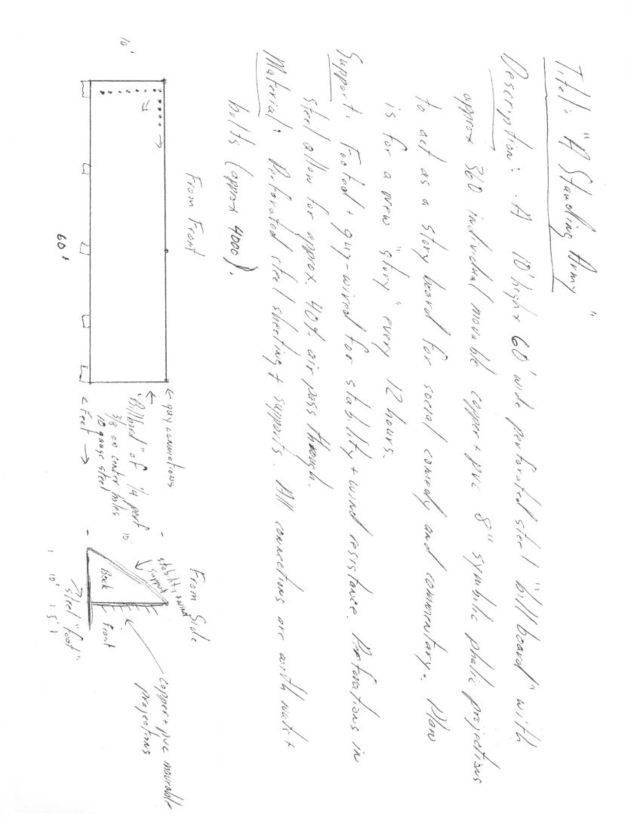 Titel: "A Standing Army"
Description: A 10' high x 60' wide perforated steel "billboard" with
approx 360 individual movable copper + pvc 8" symbolic phalic projections
to act as a story board for social comedy and commentary. Plan
is for a new "story" every 12 hours.
Support: Footed + guy-wired for stability + wind resistance. Perforations in
steel allow for approx. 40% air pass through.
Material: Perforated steel sheeting + supports. All connections are with nuts +
bolts (approx 4000).
From Front
10'
60'
← guy connections
"Billbord" of 1/4 perf
3/8 on center holes
10 gauge steel
← Feet →
From Side
10'
stability + wind
support
Back
Front
10'
5'
Steel "foot"
copper + pvc mourable
projections